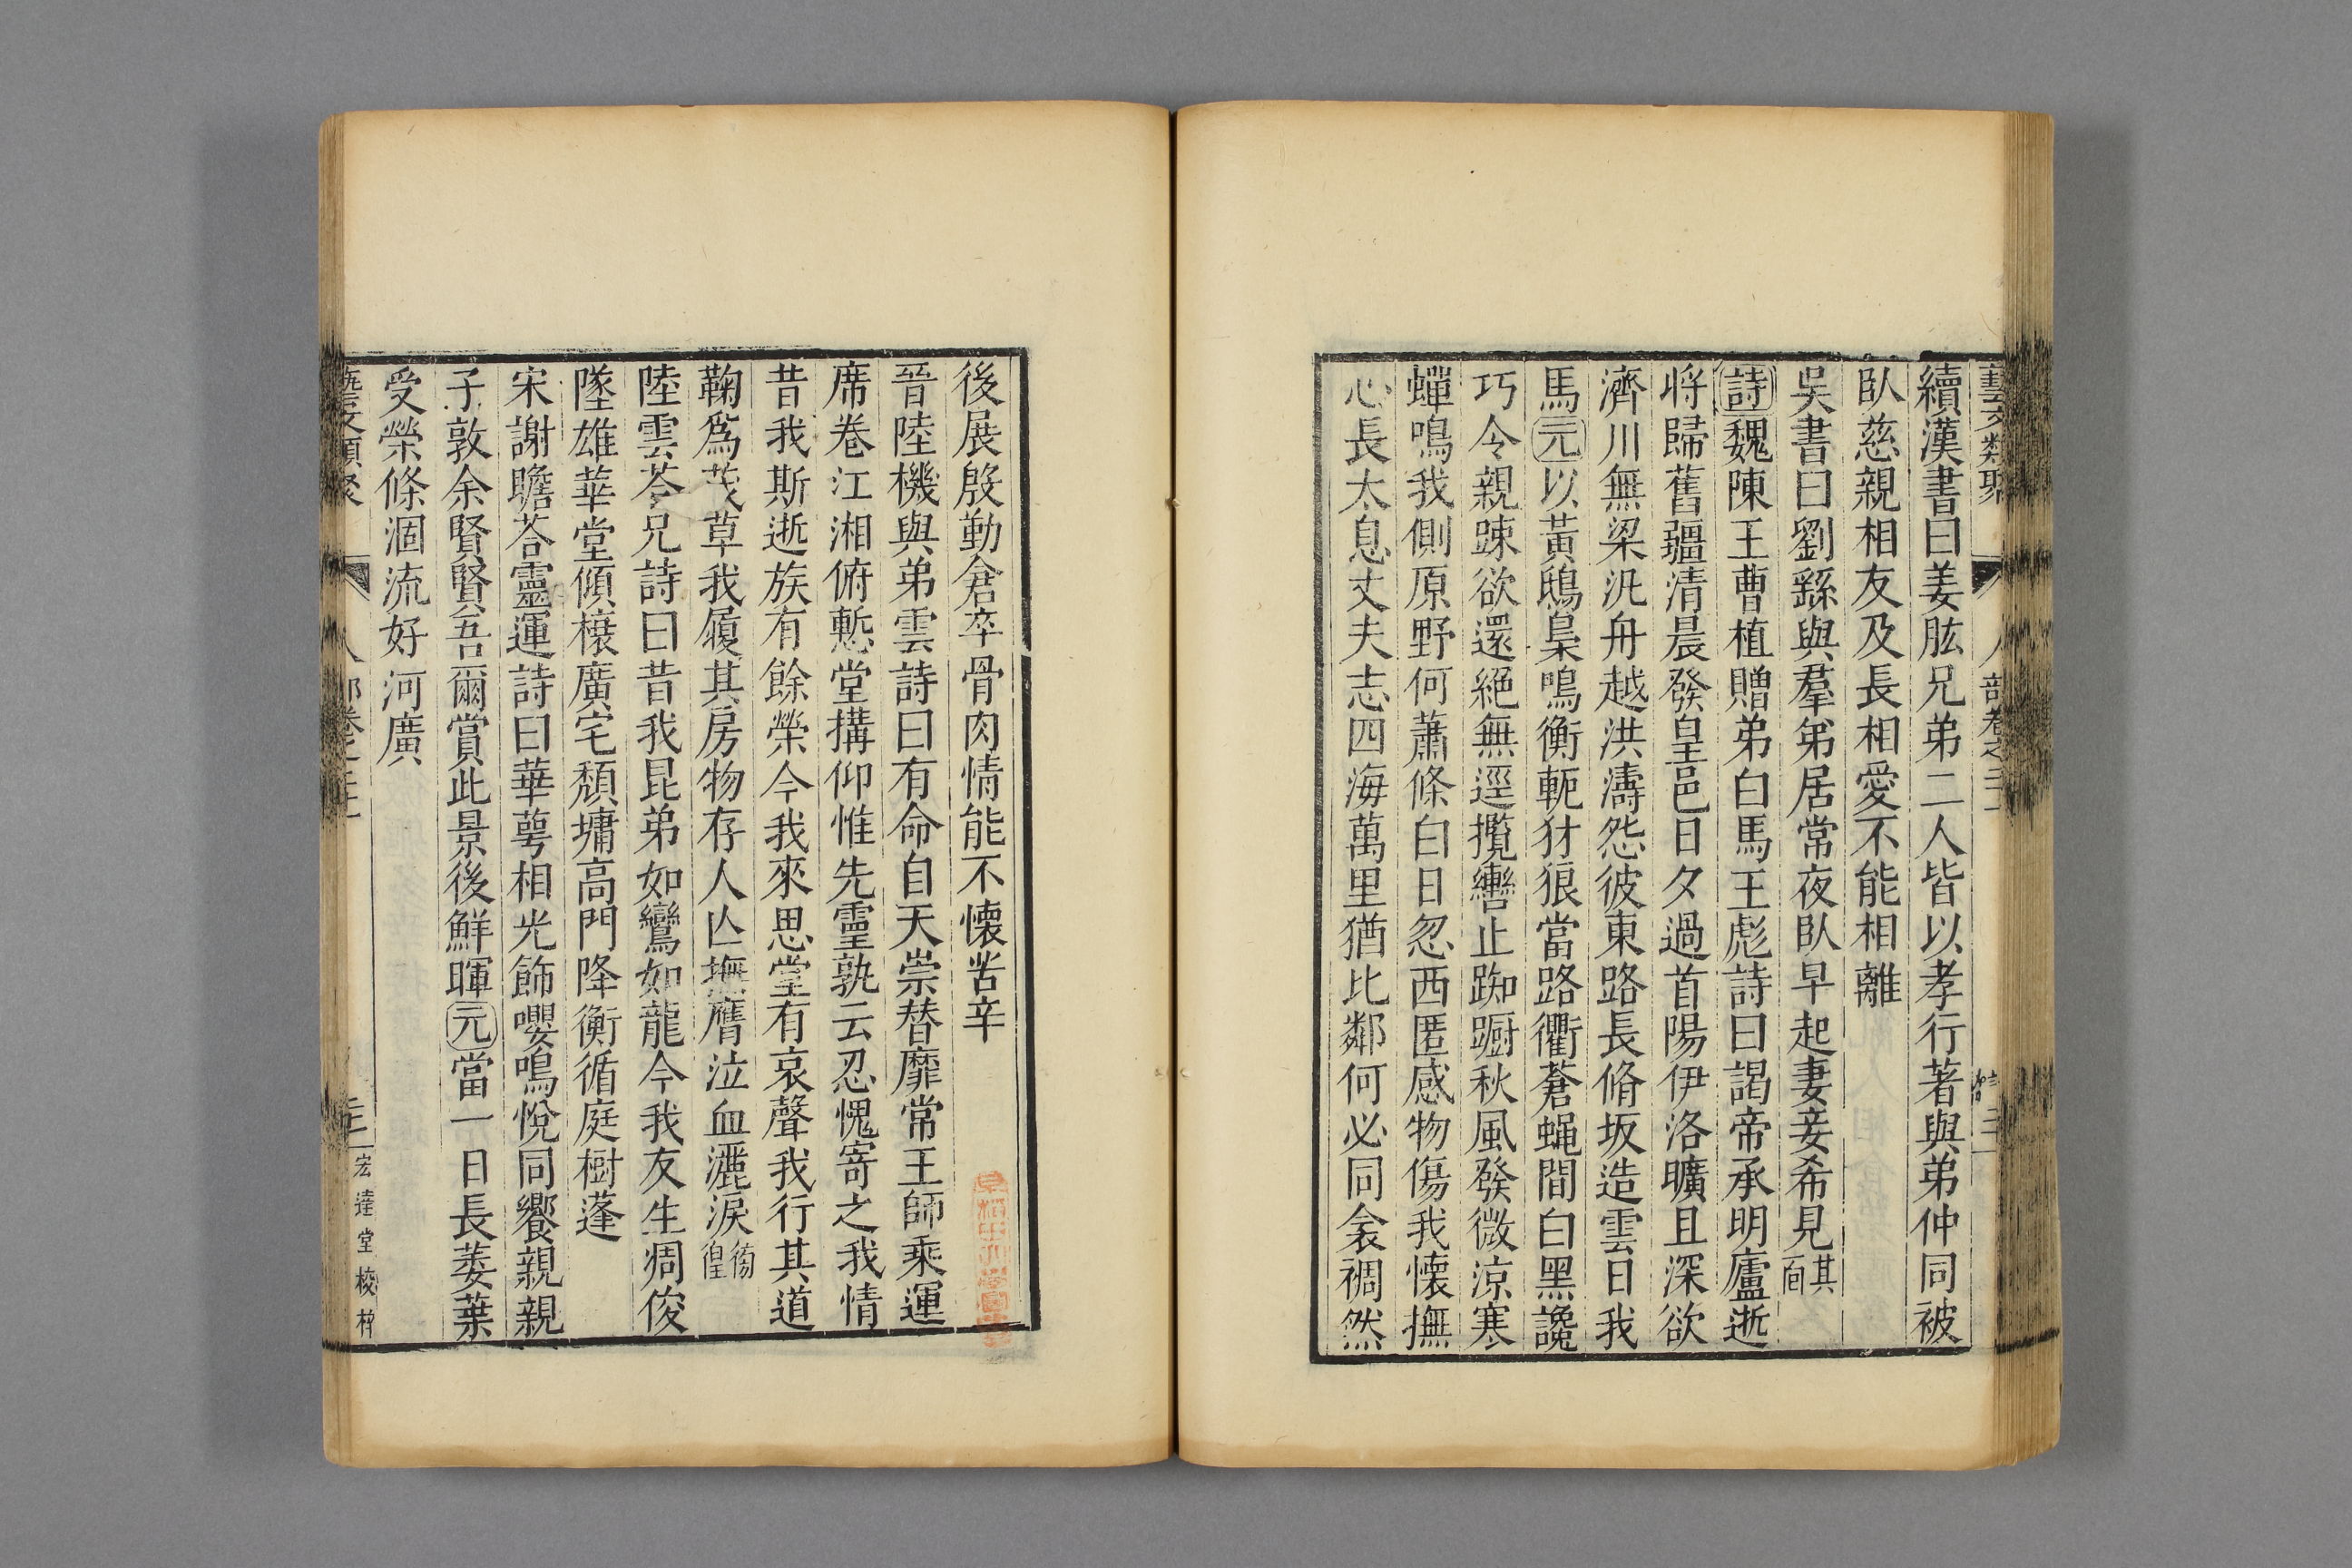 藝文類聚 人部卷之二十一
續漢書曰姜肱兄弟二人皆以孝行著與弟仲同被
臥慈親相友及長相愛不能相離
吳書曰劉繇與羣弟居常夜臥早起妻妾希見其面
詩魏陳王曹植贈弟白馬王彪詩曰謁帝承明廬逝
將歸舊疆清晨發皇邑日夕過首陽伊洛曠且深欲
濟川無梁汎舟越洪濤怨彼東路長脩坂造雲日我
馬元以黃鴟梟鳴衡軛豺狼當路衢蒼蝿間白黑讒
巧令親踈欲還絕無逕攬轡止踟蹰秋風發微涼寒
蟬鳴我側原野何蕭條白日忽西匿感物傷我懷撫
心長太息丈夫志四海萬里猶比鄰何必同衾裯然
後展殷勤倉卒骨肉情能不懷苦辛
晉陸機與弟雲詩曰有命自天崇替靡常王師乘運
席卷江湘俯慙堂搆仰惟先靈孰云忍愧寄之我情
昔我斯逝族有餘榮今我來思堂有哀聲我行其道
鞠爲茂草我履其房物存人亾撫膺泣血灑淚徬徨
陸雲荅兄詩曰昔我昆弟如鸞如龍今我友生凋俊
墜雄華堂傾榱廣宅頹墉高門降衡循庭樹蓬
宋謝瞻荅靈運詩曰華萼相光飾嚶鳴悅同饗親親
子敦余賢賢吾爾賞此景後鮮暉元當一日長萎葉
受榮條涸流好河廣
藝文類聚 人部卷之二十一 宏達堂校梓